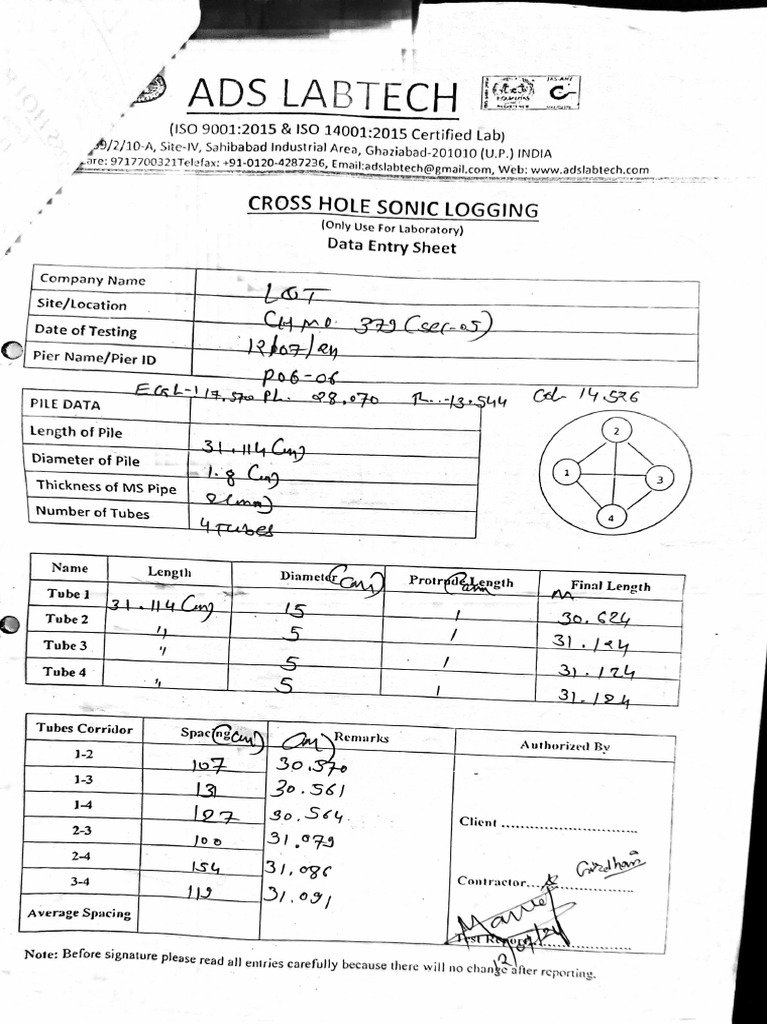 ADS LABTECH
(ISO 9001:2015 & ISO 14001:2015 Certified Lab)
/2/10-A, Site-IV, Sahibabad Industrial Area, Ghaziabad-201010 (U.P.) INDIA
are: 9717700321Telefax: +91-0120-4287236, Email:adslabtech@gmail.com, Web: www.adslabtech.com
CROSS HOLE SONIC LOGGING
(Only Use For Laboratory)
Data Entry Sheet
Company Name L&T
Site/Location CHMO 379 (sec-05)
Date of Testing 12/07/24
Pier Name/Pier ID P06-06
EGL-117.570 PL. 28.070 -13.544 Col- 14.526
PILE DATA
Length of Pile 31.114 (m)
Diameter of Pile 1.8 (m)
Thickness of MS Pipe 2 (mm)
Number of Tubes 4 Tubes
2
1 3
4
Name Length Diameter (cm) Protrude Length (cm) Final Length m
Tube 1 31.114 (m) 15 1 30.624
Tube 2 " 5 1 31.124
Tube 3 " 5 1 31.124
Tube 4 " 5 1 31.124
Tubes Corridor Spacing (cm) (m) Remarks Authorized By
1-2 107 30.570
1-3 131 30.561
1-4 127 30.564
2-3 100 31.079
2-4 154 31.086
3-4 112 31.091
Average Spacing
Client
Contractor Girdhari
Test Report
12/07/24
Note: Before signature please read all entries carefully because there will no change after reporting.